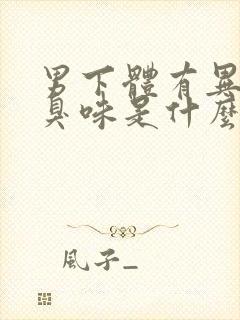 男下體有異
臭味是什麼
風子_